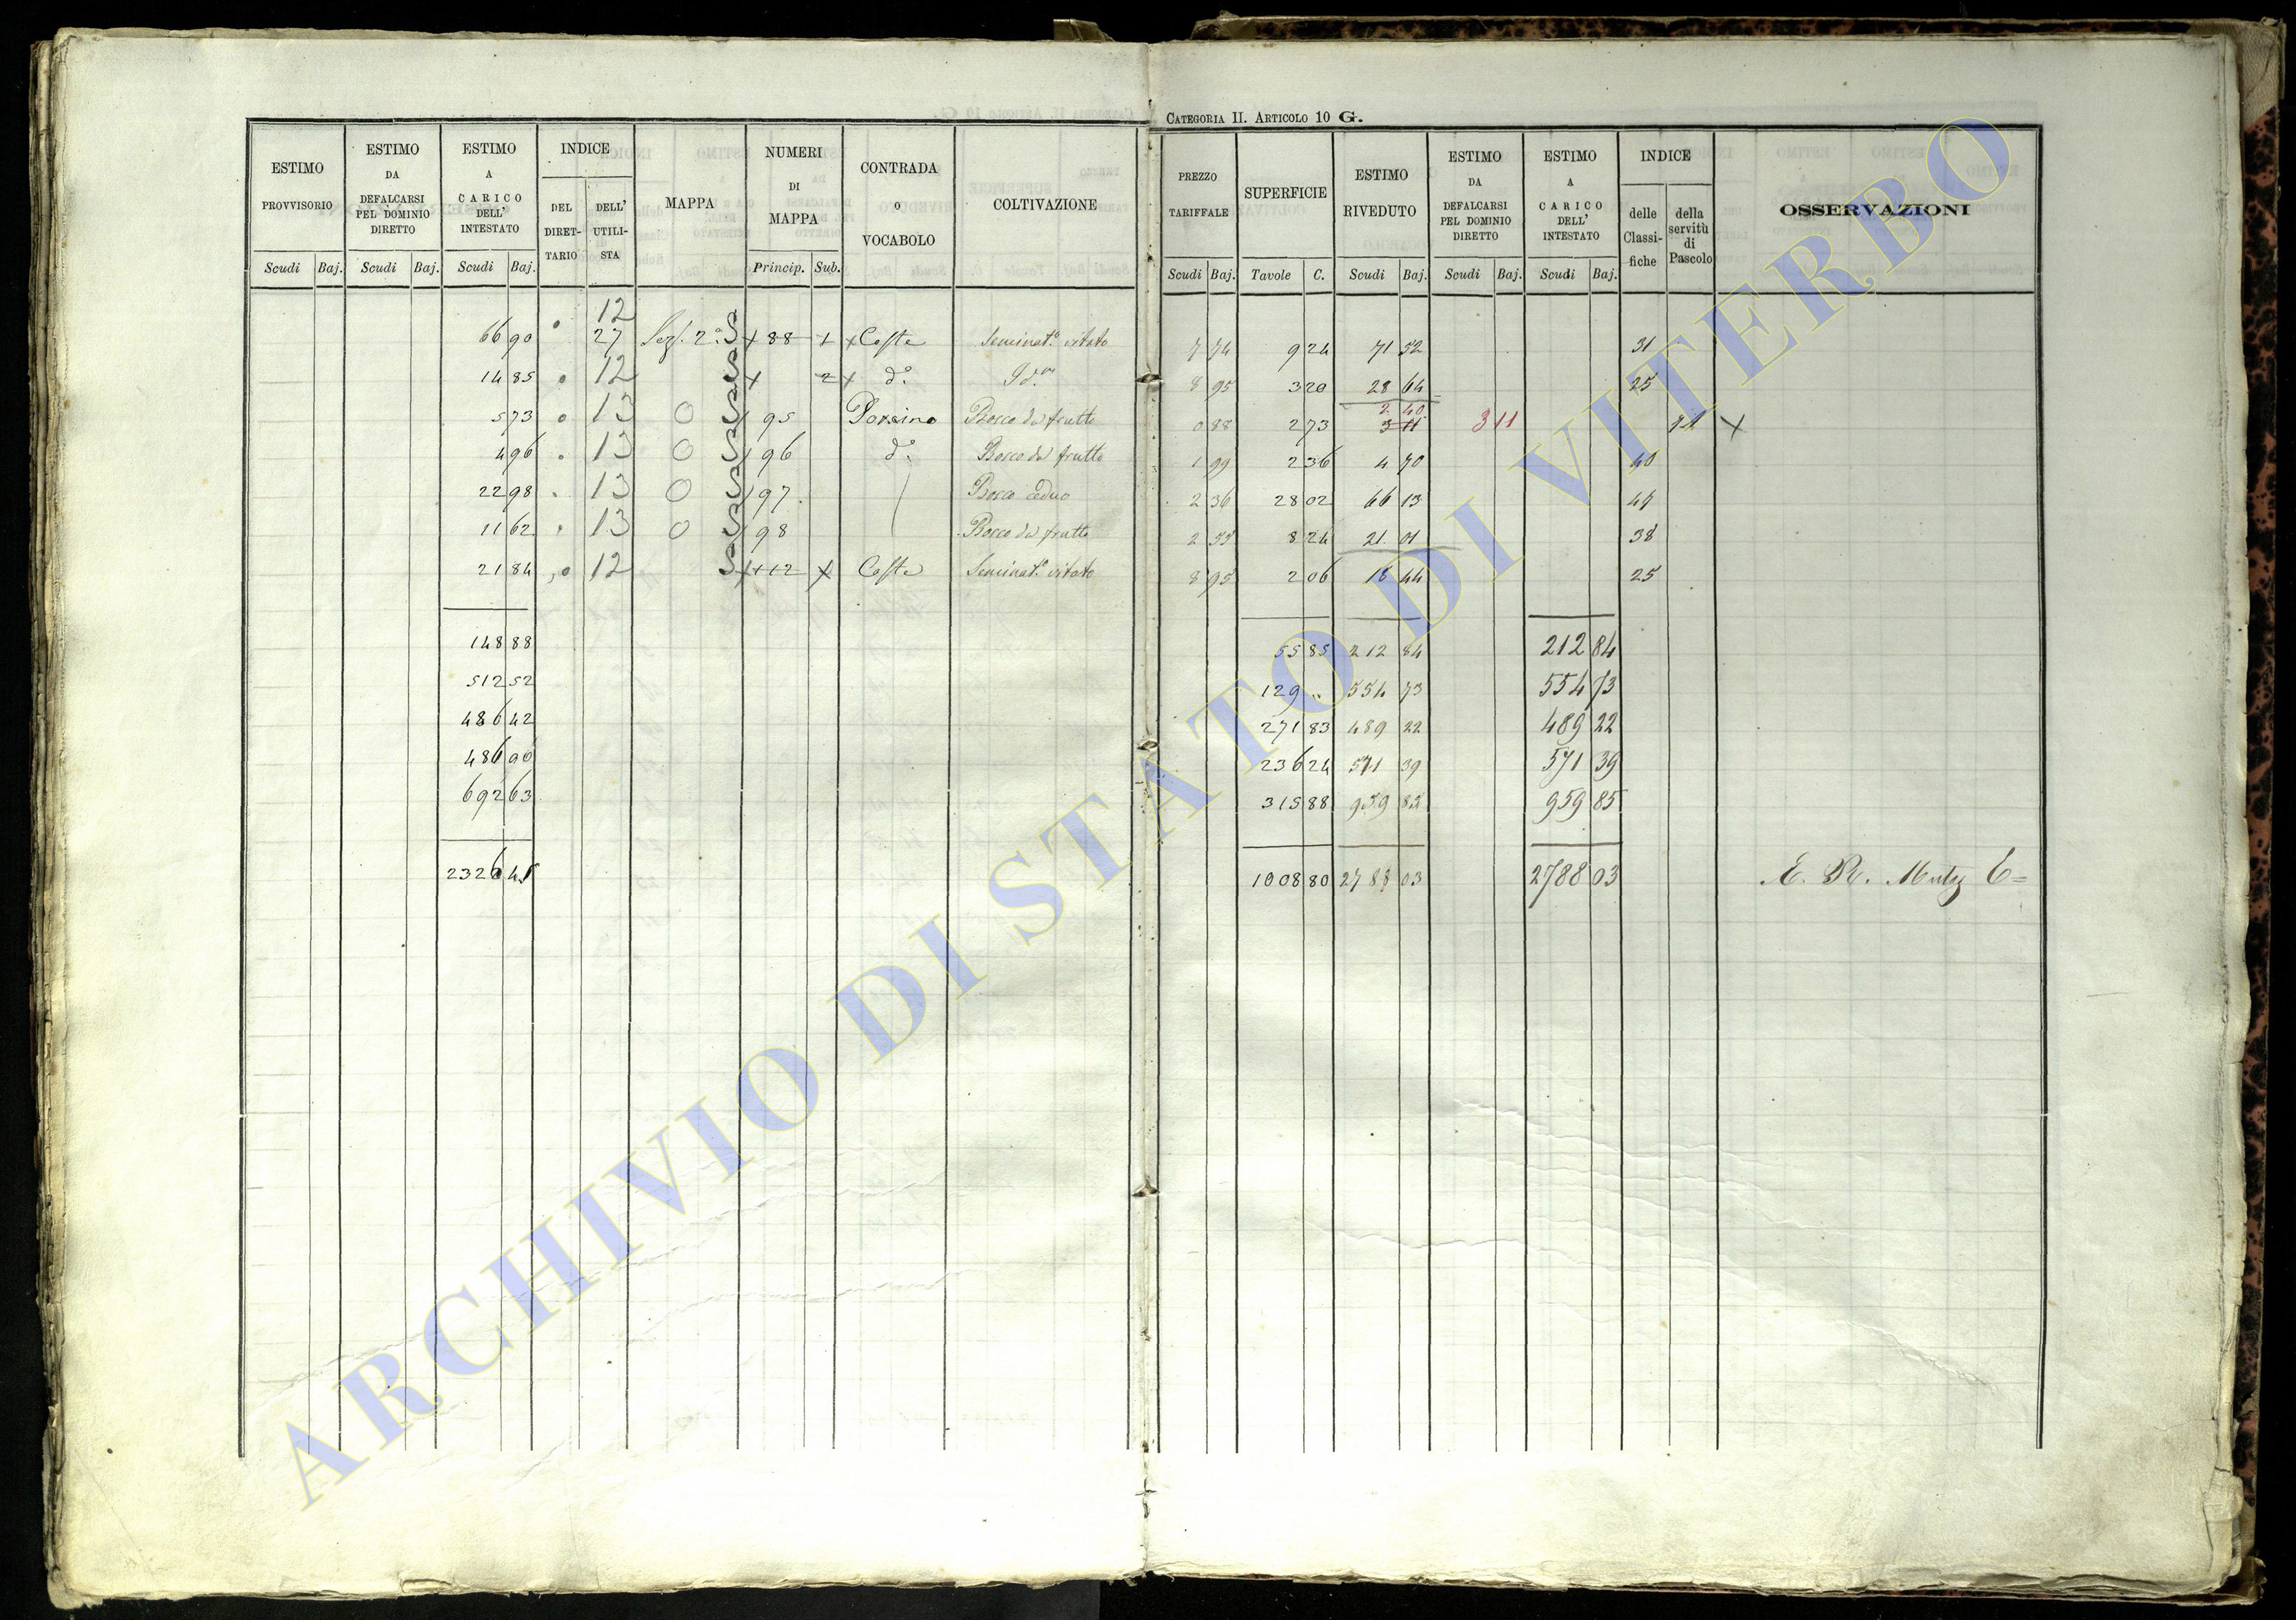 CATEGORIA II. ARTICOLO 10 G.
ESTIMO PROVVISORIO Scudi Baj.
ESTIMO DA DEFALCARSI PEL DOMINIO DIRETTO Scudi Baj.
ESTIMO A CARICO DELL' INTESTATO Scudi Baj.
INDICE DEL DIRET-TARIO DELL' UTILI-STA
MAPPA
NUMERI DI MAPPA Princip. Sub.
CONTRADA o VOCABOLO
COLTIVAZIONE
PREZZO TARIFFALE Scudi Baj.
SUPERFICIE Tavole C.
ESTIMO RIVEDUTO Scudi Baj.
ESTIMO DA DEFALCARSI PEL DOMINIO DIRETTO Scudi Baj.
ESTIMO A CARICO DELL' INTESTATO Scudi Baj.
INDICE delle Classi-fiche della servitù di Pascolo
OSSERVAZIONI
12
66 90 27 Sez. 2ª 88 1 Coste Seminatº vitato 7 74 9 24 71 52 31
14 85 12 2 dº Idm 8 95 3 20 28 64 25
2 40
5 73 13 95 Porcino Bosco da frutto 0 88 2 73 3 11 3 11 X
4 96 13 96 dº Bosco da frutto 1 99 2 36 4 70 40
22 98 13 97 Bosco ceduo 2 36 28 02 66 13 49
11 62 13 98 Bosco da frutto 2 55 8 24 21 01 38
21 84 12 112 Coste Seminatº vitato 8 95 2 06 18 44 25
148 88 55 85 212 84 212 84
512 52 129 " 554 73 554 73
486 42 271 83 489 22 489 22
486 90 236 24 571 39 571 39
692 63 315 88 959 85 959 85
2326 45 1008 80 2788 03 2788 03 E. R.
ARCHIVIO DI STATO DI VITERBO